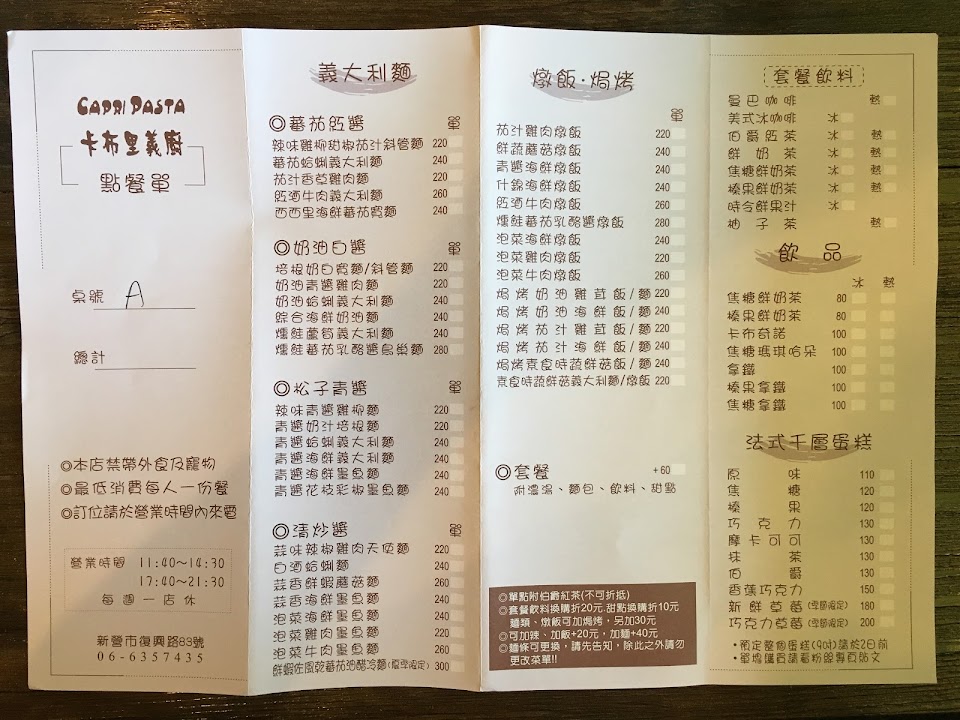 CAPRI PASTA
卡布里義廚
點餐單
桌號 A
總計
◎本店禁帶外食及寵物
◎最低消費每人一份餐
◎訂位請於營業時間內來電
營業時間 11:40~14:30
17:40~21:30
每週一店休
新營市復興路83號
06-6357435
義大利麵
◎蕃茄紅醬 單
辣味雞柳甜椒茄汁斜管麵 220
蕃茄蛤蜊義大利麵 240
茄汁香草雞肉麵 220
紅酒牛肉義大利麵 260
西西里海鮮蕃茄寬麵 240
◎奶油白醬 單
培根奶白寬麵/斜管麵 220
奶油青醬雞肉麵 220
奶油蛤蜊義大利麵 240
綜合海鮮奶油麵 240
燻鮭蘆筍義大利麵 240
燻鮭蕃茄乳酪醬鳥巢麵 280
◎松子青醬 單
辣味青醬雞柳麵 220
青醬奶汁培根麵 220
青醬蛤蜊義大利麵 240
青醬海鮮義大利麵 240
青醬海鮮墨魚麵 240
青醬花枝彩椒墨魚麵 240
◎清炒醬 單
蒜味辣椒雞肉天使麵 220
白酒蛤蜊麵 240
蒜香鮮蝦蘑菇麵 260
蒜香海鮮墨魚麵 240
泡菜海鮮墨魚麵 240
泡菜雞肉墨魚麵 220
泡菜牛肉墨魚麵 260
鮮蝦佐風乾蕃茄油醋冷麵(夏季限定) 300
燉飯·焗烤
單
茄汁雞肉燉飯 220
鮮蔬蘑菇燉飯 240
青醬海鮮燉飯 240
什錦海鮮燉飯 240
紅酒牛肉燉飯 260
燻鮭蕃茄乳酪醬燉飯 280
泡菜海鮮燉飯 240
泡菜雞肉燉飯 220
泡菜牛肉燉飯 260
焗烤奶油雞茸飯/麵 220
焗烤奶油海鮮飯/麵 240
焗烤茄汁雞茸飯/麵 220
焗烤茄汁海鮮飯/麵 240
焗烤素食時蔬鮮菇飯/麵 240
素食時蔬鮮菇義大利麵/燉飯 220
◎套餐 +60
附濃湯、麵包、飲料、甜點
◎單點附伯爵紅茶(不可折抵)
◎套餐飲料換購折20元.甜點換購折10元
麵類、燉飯可加焗烤，另加30元
◎可加辣、加飯+20元，加麵+40元
◎麵條可更換，請先告知，除此之外請勿
更改菜單!!
套餐飲料
曼巴咖啡 熱
美式冰咖啡 冰
伯爵紅茶 冰 熱
鮮奶茶 冰 熱
焦糖鮮奶茶 冰 熱
榛果鮮奶茶 冰 熱
時令鮮果汁 冰
柚子茶 熱
飲品
冰 熱
焦糖鮮奶茶 80
榛果鮮奶茶 80
卡布奇諾 100
焦糖瑪琪哈朵 100
拿鐵 100
榛果拿鐵 100
焦糖拿鐵 100
法式千層蛋糕
原味 110
焦糖 120
榛果 120
巧克力 130
摩卡可可 130
抹茶 130
伯爵 130
香蕉巧克力 150
新鮮草莓(季節限定) 180
巧克力草莓(季節限定) 200
•預定整個蛋糕(9吋)請於2日前
•單塊購買請看粉絲專頁貼文